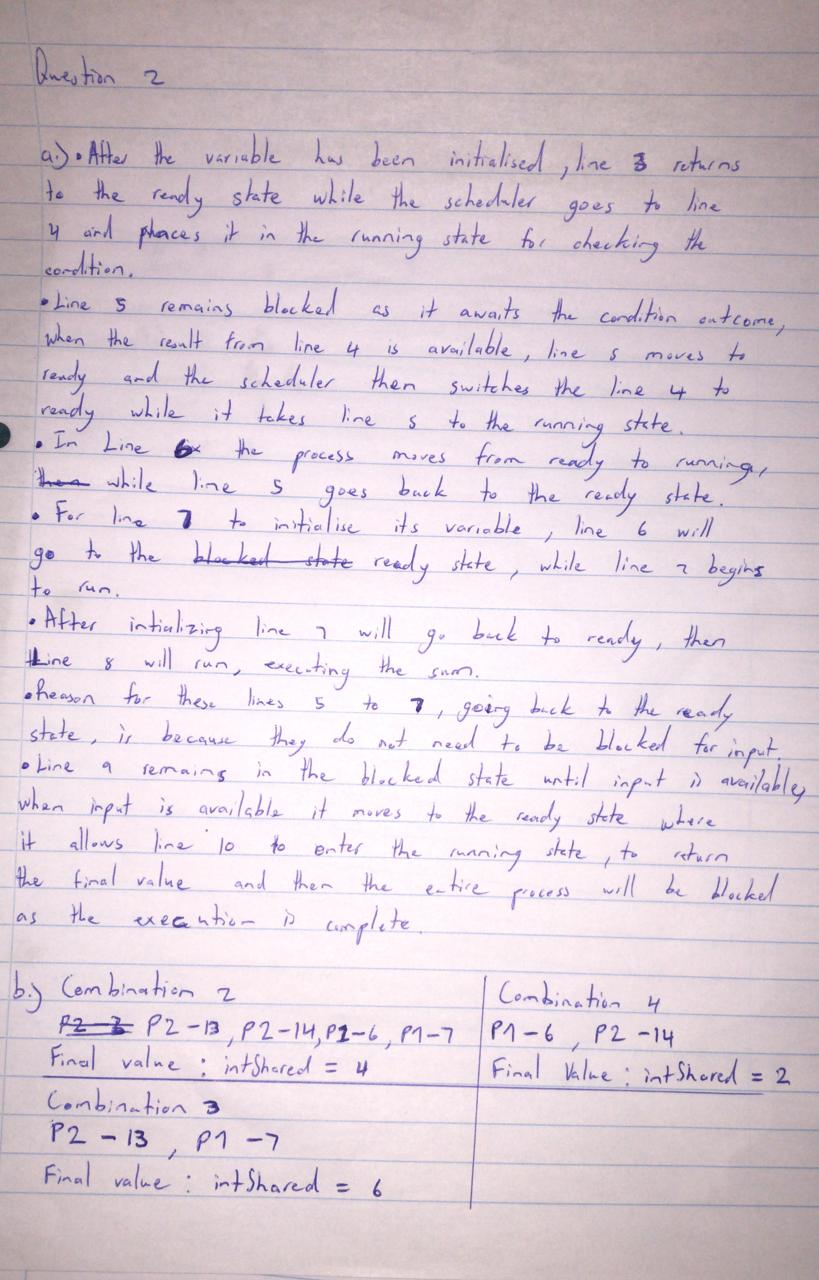 Question 2
a.) • After the variable has been initialised, line 3 returns
to the ready state while the scheduler goes to line
4 and places it in the running state for checking the
condition.
• Line 5 remains blocked as it awaits the condition outcome,
when the result from line 4 is available, line 5 moves to
ready and the scheduler then switches the line 4 to
ready while it takes line 5 to the running state.
• In Line 6 the process moves from ready to running,
then while line 5 goes back to the ready state.
• For line 7 to initialise its variable, line 6 will
go to the blocked state ready state, while line 7 begins
to run.
• After intializing line 7 will go back to ready, then
Line 8 will run, executing the sum.
• Reason for these lines 5 to 7, going back to the ready
state, is because they do not need to be blocked for input.
• Line 9 remains in the blocked state until input is available,
when input is available it moves to the ready state where
it allows line 10 to enter the running state, to return
the final value and then the entire process will be blocked
as the execution is complete.
b.) Combination 2
P2-13, P2-14, P1-6, P1-7
Final value : intShared = 4
Combination 4
P1-6, P2-14
Final Value : intShared = 2
Combination 3
P2-13, P1-7
Final value : intShared = 6